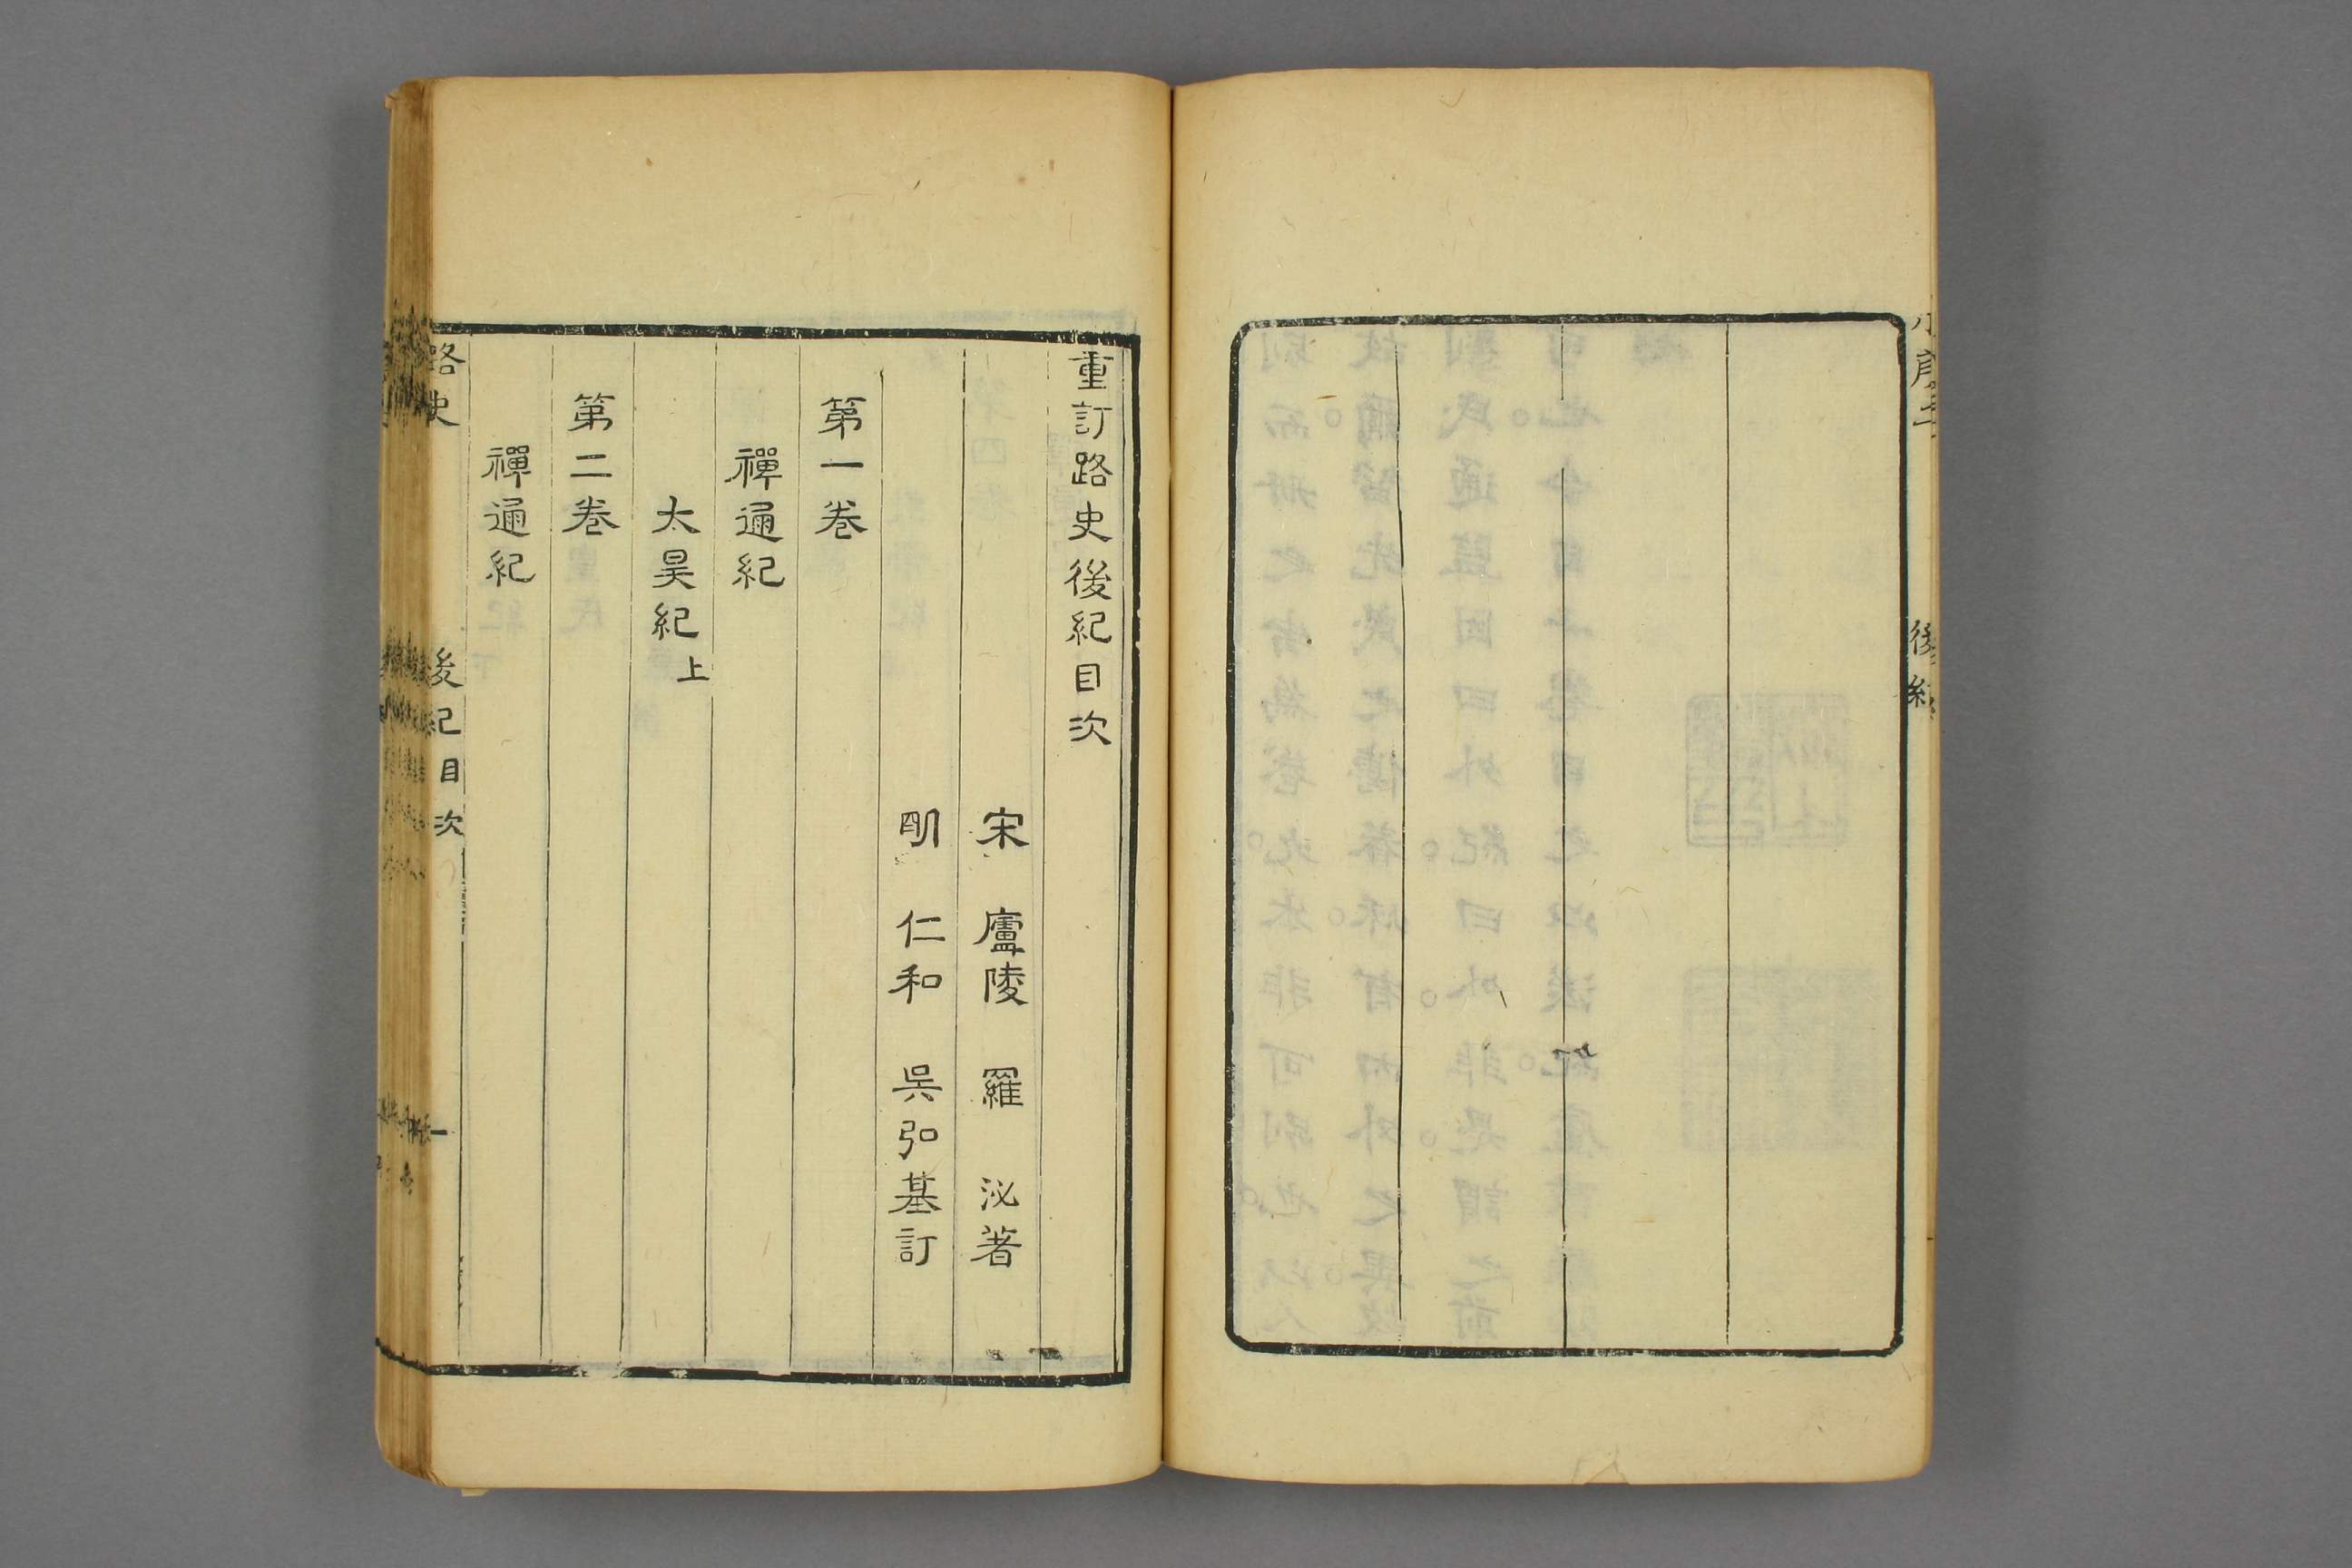 後紀
重訂路史後紀目次
宋　廬陵　羅　泌著
明　仁和　吳弘基訂
第一卷
禪通紀
太昊紀上
第二卷
禪通紀
路史　後紀目次　一